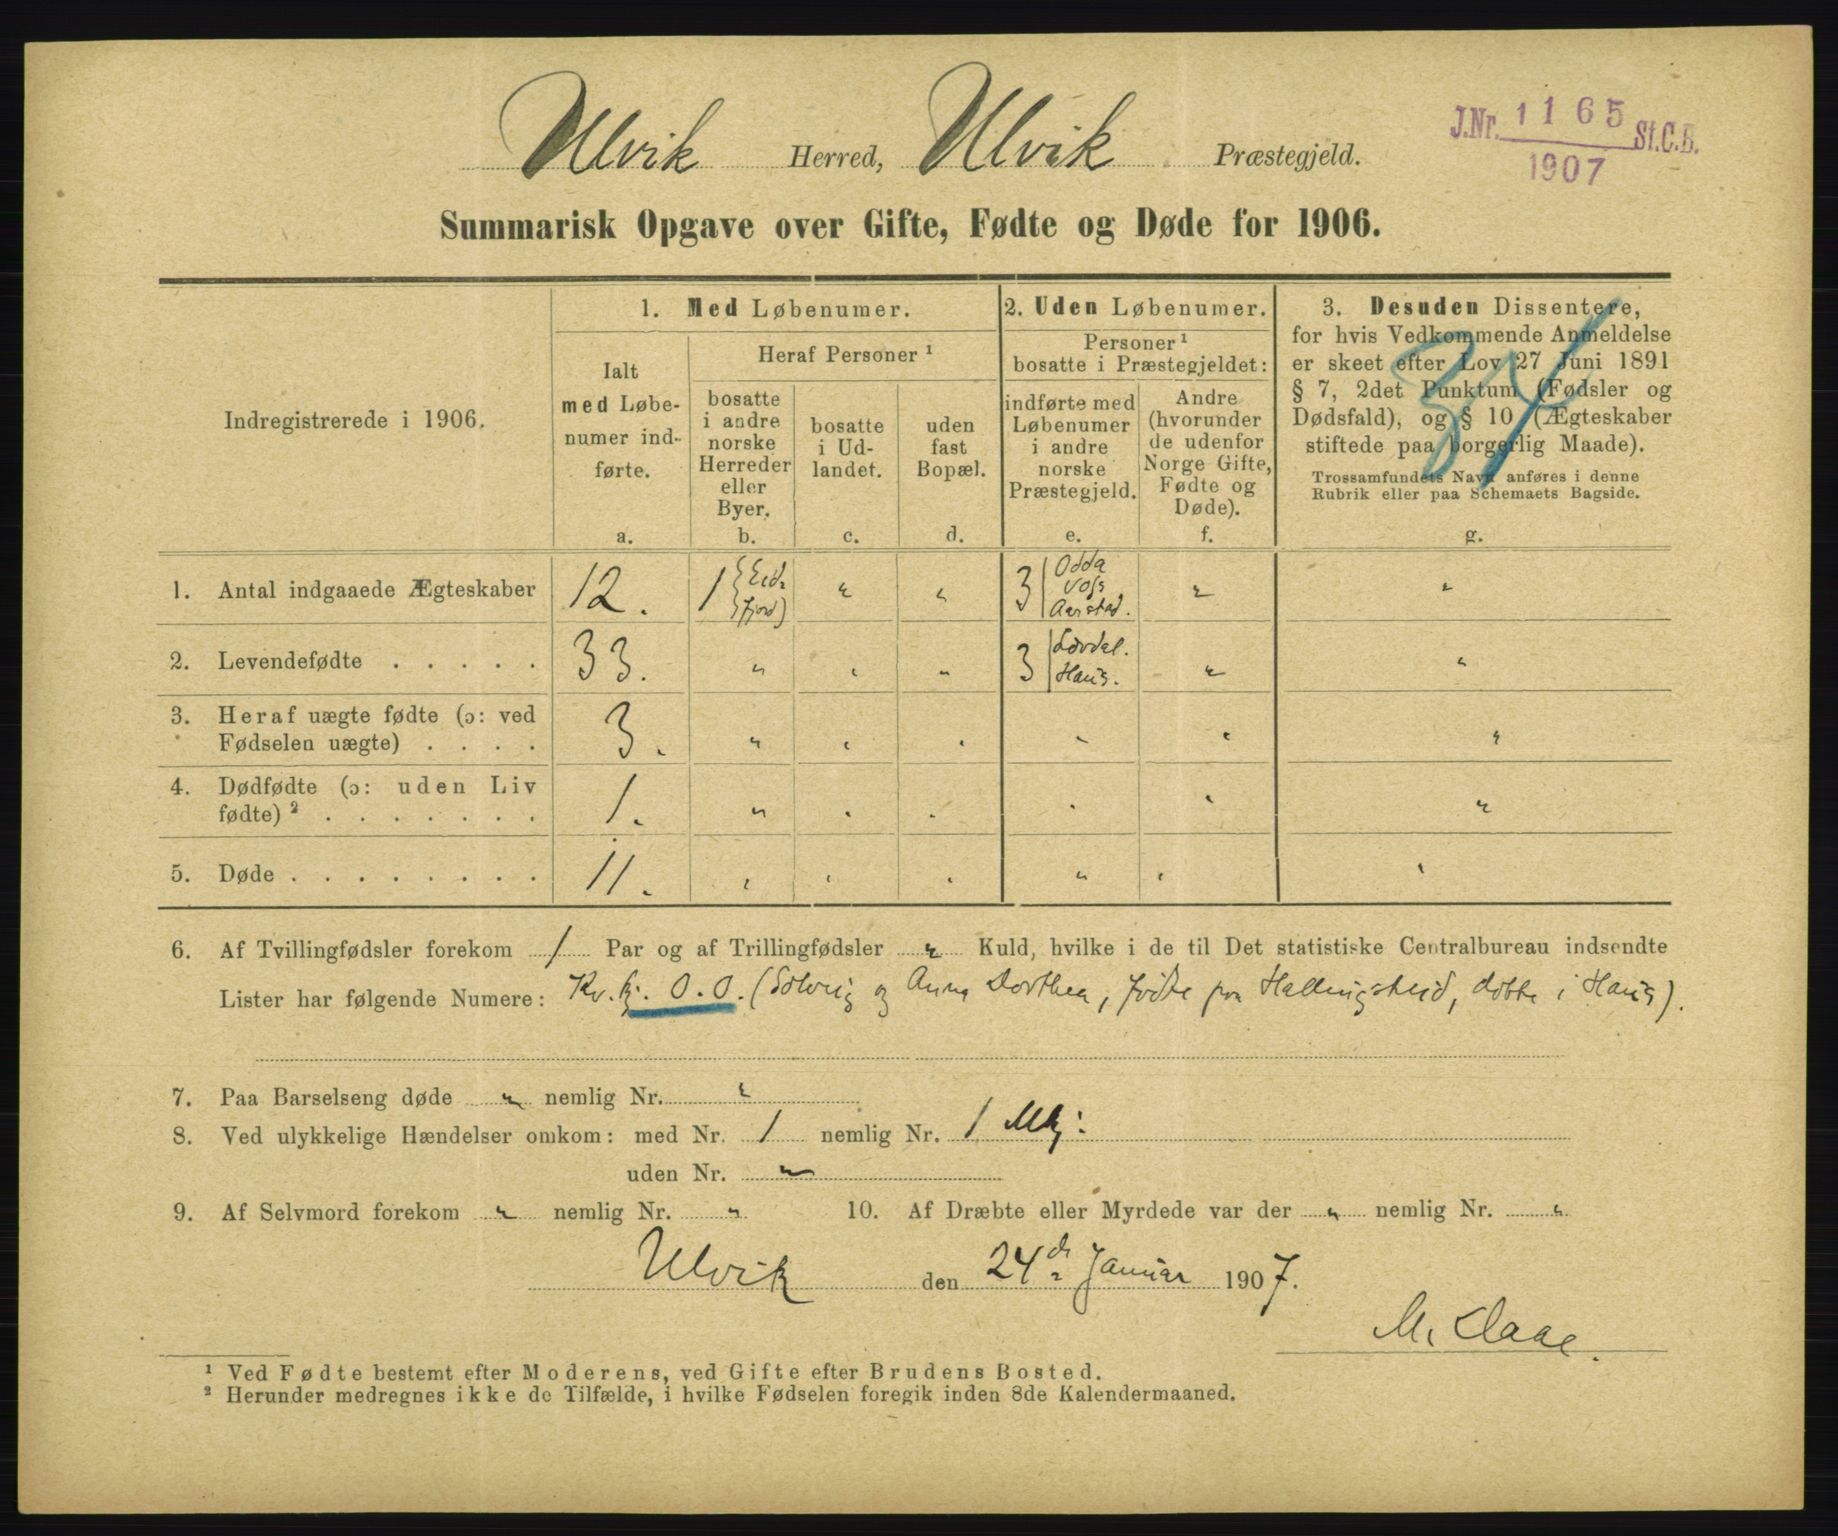 Ulvik Herred, Ulvik Præstegjeld.
J.Nr. 1165 St.C.B.
1907
Summarisk Opgave over Gifte, Fødte og Døde for 1906.
Indregistrerede i 1906.
1. Med Løbenumer.
Ialt
med Løbe-
numer ind-
førte.
a.
Heraf Personer ¹
bosatte
i andre
norske
Herreder
eller
Byer.
b.
bosatte
i Ud-
landet.
c.
uden
fast
Bopæl.
d.
2. Uden Løbenumer.
Personer ¹
bosatte i Præstegjeldet:
indførte med
Løbenumer
i andre
norske
Præstegjeld.
e.
Andre
(hvorunder
de udenfor
Norge Gifte,
Fødte og
Døde).
f.
3. Desuden Dissentere,
for hvis Vedkommende Anmeldelse
er skeet efter Lov 27 Juni 1891
§ 7, 2det Punktum (Fødsler og
Dødsfald), og § 10 (Ægteskaber
stiftede paa borgerlig Maade).
Trossamfundets Navn anføres i denne
Rubrik eller paa Schemaets Bagside.
g.
34
1. Antal indgaaede Ægteskaber 12. 1 (Eid- " " 3 Odda " "
fjord) Voss
Aarstad.
2. Levendefødte . . . . . 33. " " " 3 Lærdal. " "
Haus.
3. Heraf uægte fødte (ɔ: ved
Fødselen uægte) . . . . 3. " " " " " "
4. Dødfødte (ɔ: uden Liv
fødte) ² . . . . . . . 1. " " " " " "
5. Døde . . . . . . . . 11. " " " " " "
6. Af Tvillingfødsler forekom 1 Par og af Trillingfødsler " Kuld, hvilke i de til Det statistiske Centralbureau indsendte
Lister har følgende Numere: Kv. kj. 0. 0. (Solveig og Anna Dorthea, fødte paa Hallingskeid, døbte i Haus).
7. Paa Barselseng døde " nemlig Nr. "
8. Ved ulykkelige Hændelser omkom: med Nr. 1 nemlig Nr. 1 Mkj.
uden Nr. "
9. Af Selvmord forekom " nemlig Nr. " 10. Af Dræbte eller Myrdede var der " nemlig Nr. "
Ulvik den 24de Januar 1907.
M. Claae.
¹ Ved Fødte bestemt efter Moderens, ved Gifte efter Brudens Bosted.
² Herunder medregnes ikke de Tilfælde, i hvilke Fødselen foregik inden 8de Kalendermaaned.